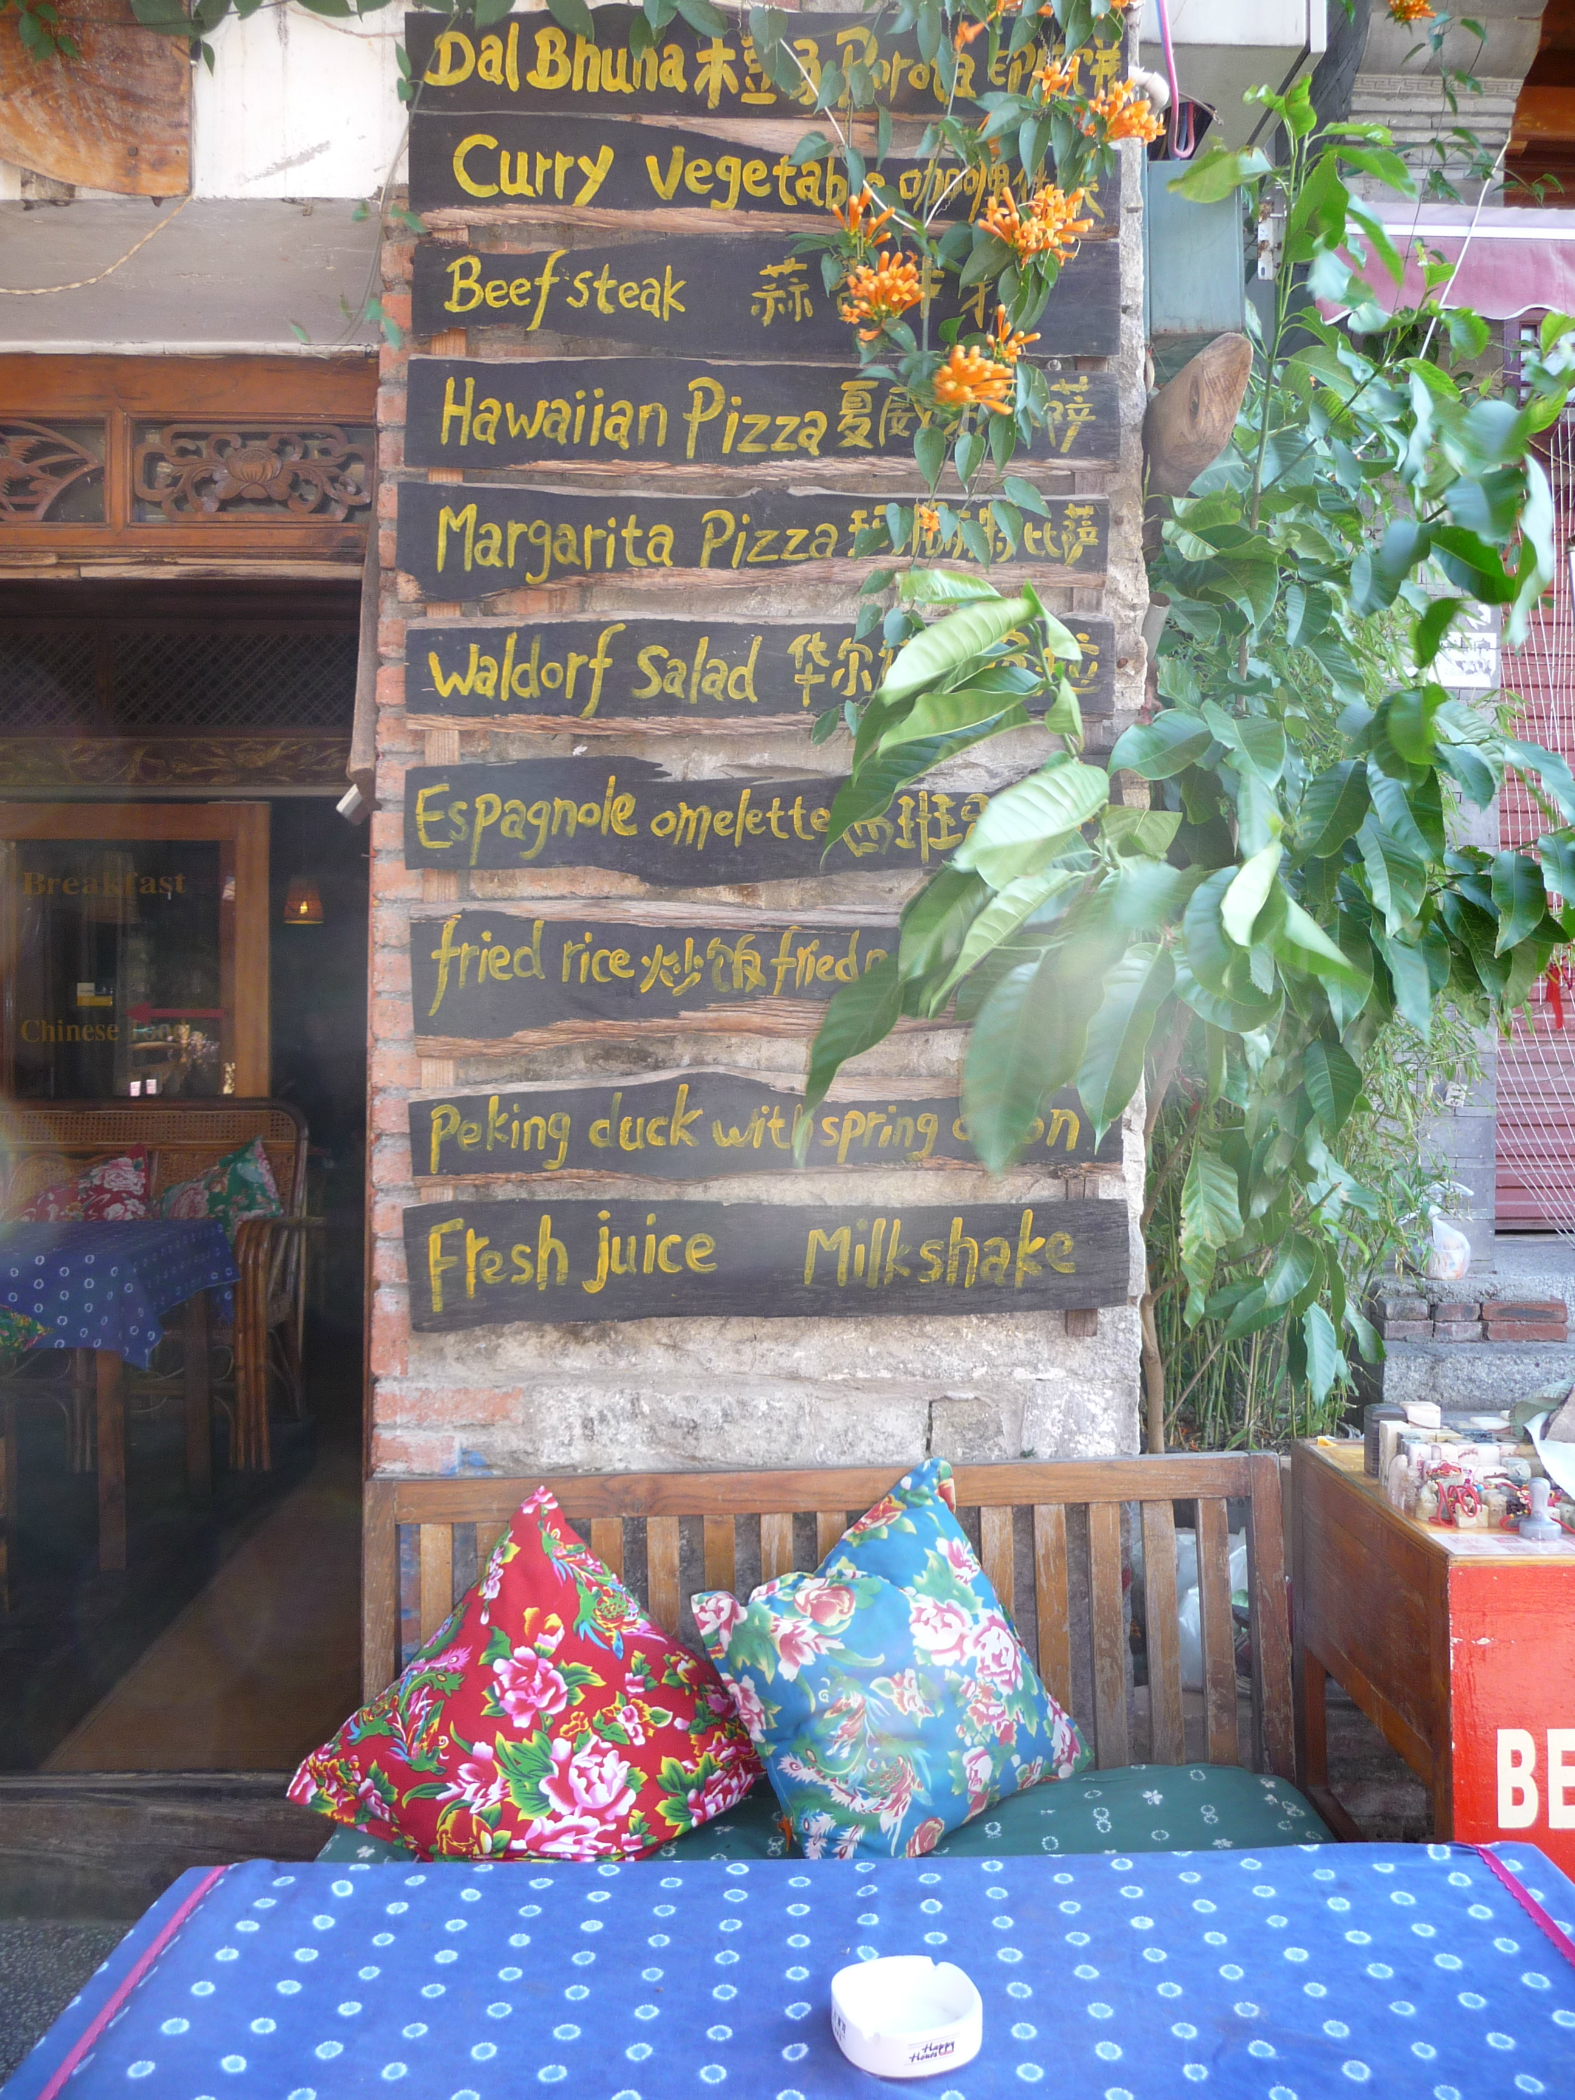 Dal Bhuna 木豆 Porota 印度饼
Curry vegetable 咖喱
Beef steak 蒜
Hawaiian Pizza 夏威 萨
Margarita Pizza 玛 特比萨
Waldorf Salad 华尔 拉
Espagnole omelette 西班
fried rice 炒饭 fried
Peking duck with spring
Fresh juice Milkshake
Breakfast
Chinese food
BE
Happy
House